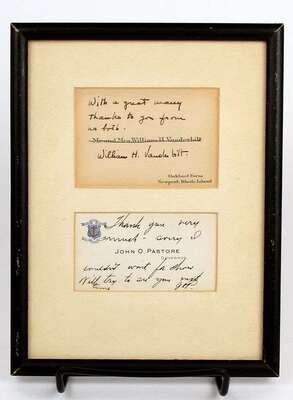 With a great many
thanks to you from
us both.
Mr. and Mrs. William H. Vanderbilt
William H. Vanderbilt
Oakland Farm
Newport, Rhode Island
Thank you very
much - sorry I
JOHN O. PASTORE
GOVERNOR
couldn't wait for show
Will try to see you next